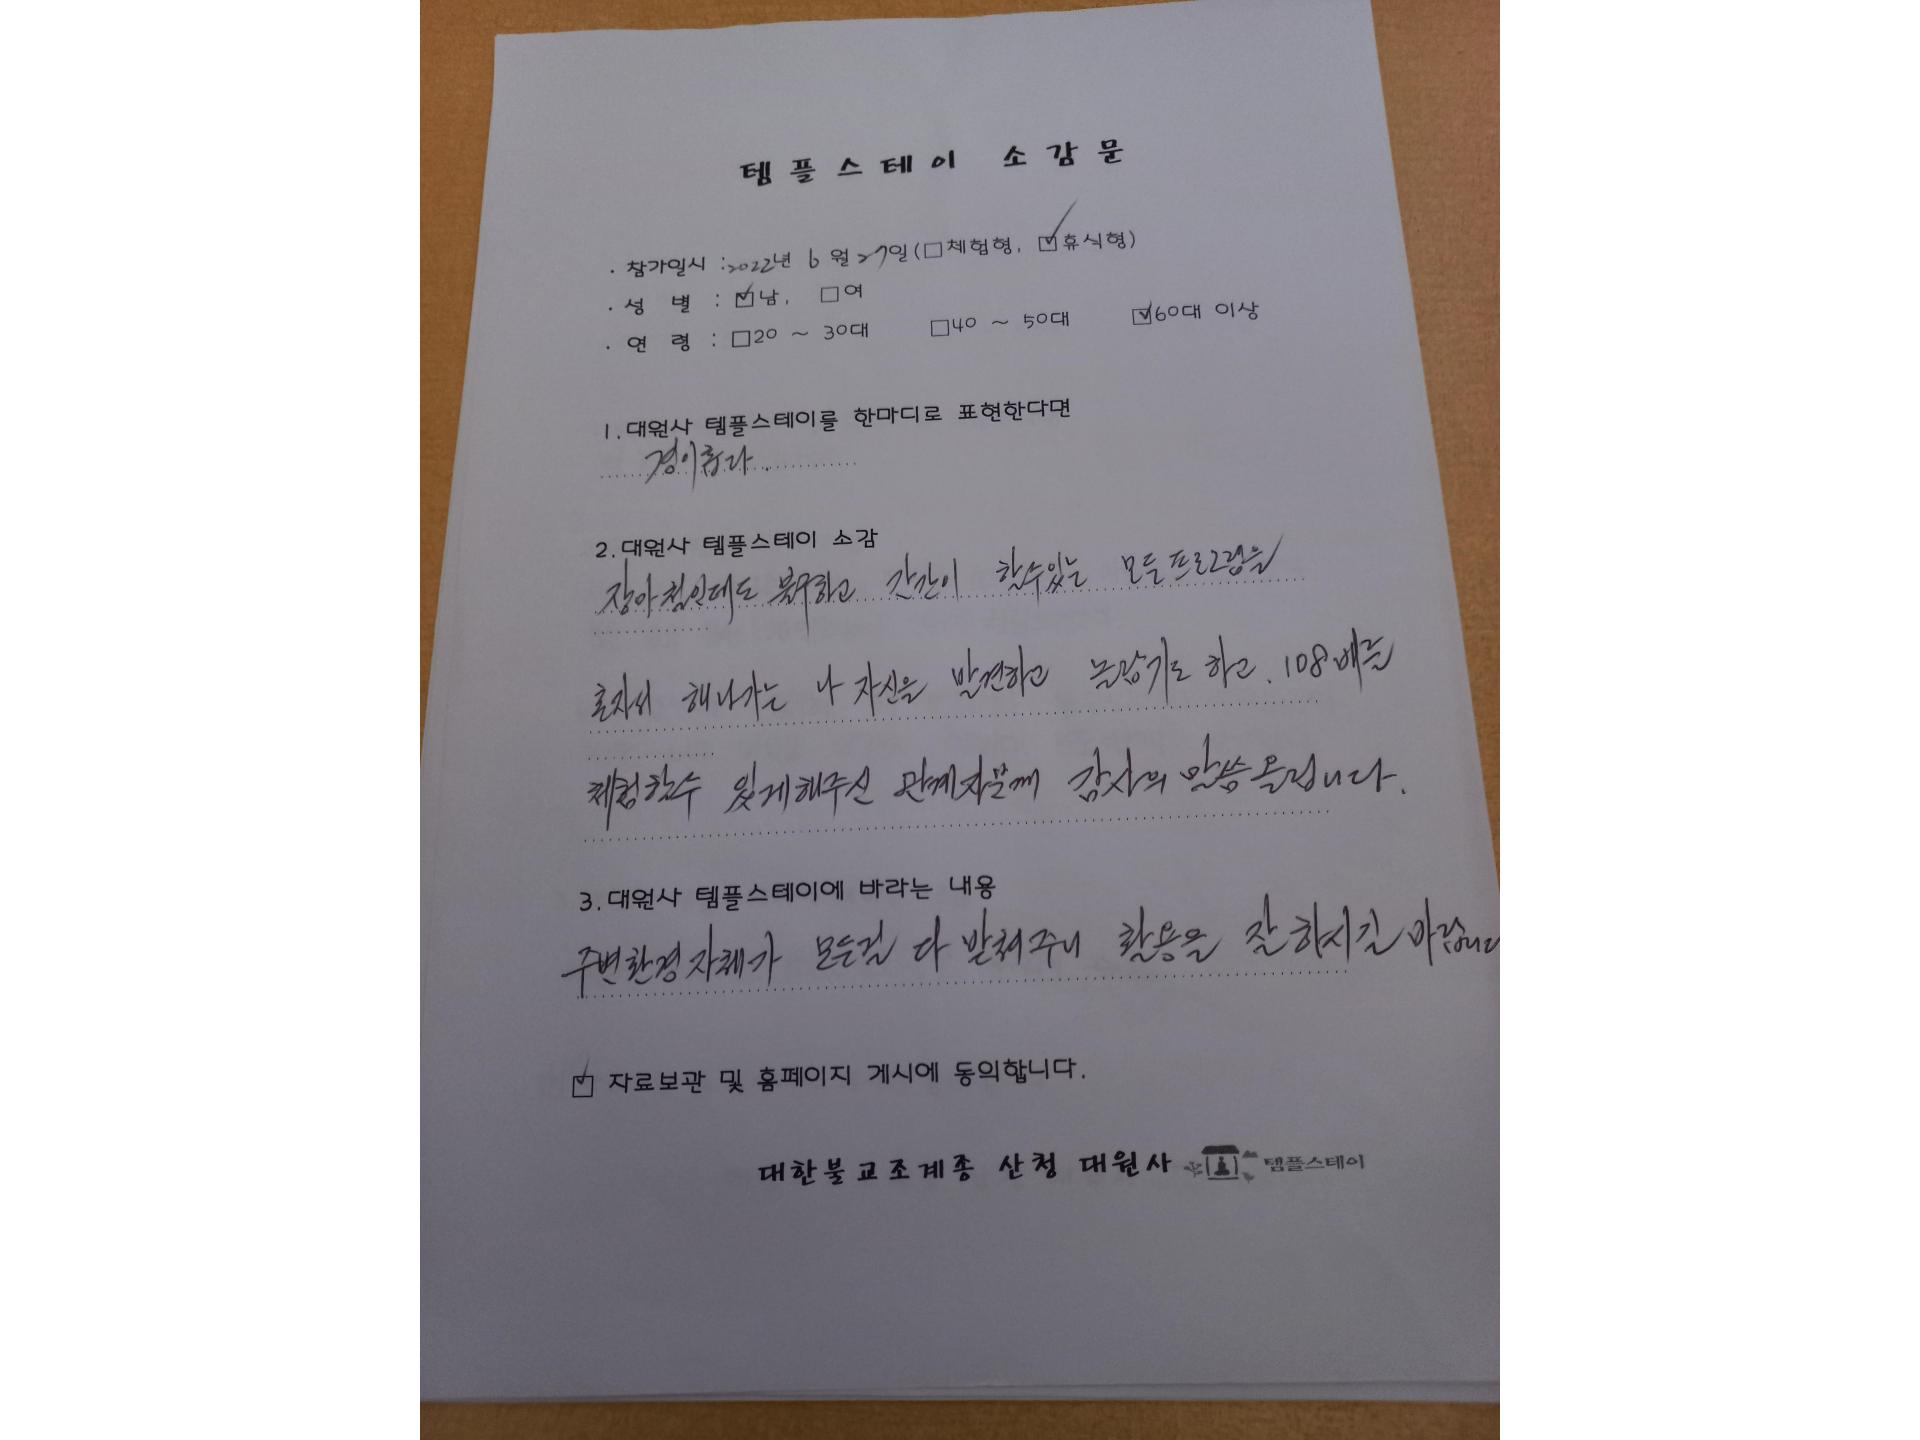 템플스테이 소감문
· 참가일시 : 2022년 6월 27일(☐체험형, ☑휴식형)
· 성 별 : ☑남, ☐여
· 연 령 : ☐20 ~ 30대 ☐40 ~ 50대 ☑60대 이상
1.대원사 템플스테이를 한마디로 표현한다면
경이롭다.
2.대원사 템플스테이 소감
불구하고 간간이 할수있는 모든프로그램을
혼자서 해나가는 나 자신을 발견하고 놀랍기도 하고. 108배를
체험할수 있게해주신 관계자분께 감사의 말씀올립니다.
3.대원사 템플스테이에 바라는 내용
주변환경자체가 모든걸 다 받쳐주니 활용을 잘하시길 바랍니다
☑ 자료보관 및 홈페이지 게시에 동의합니다.
대한불교조계종 산청 대원사 템플스테이